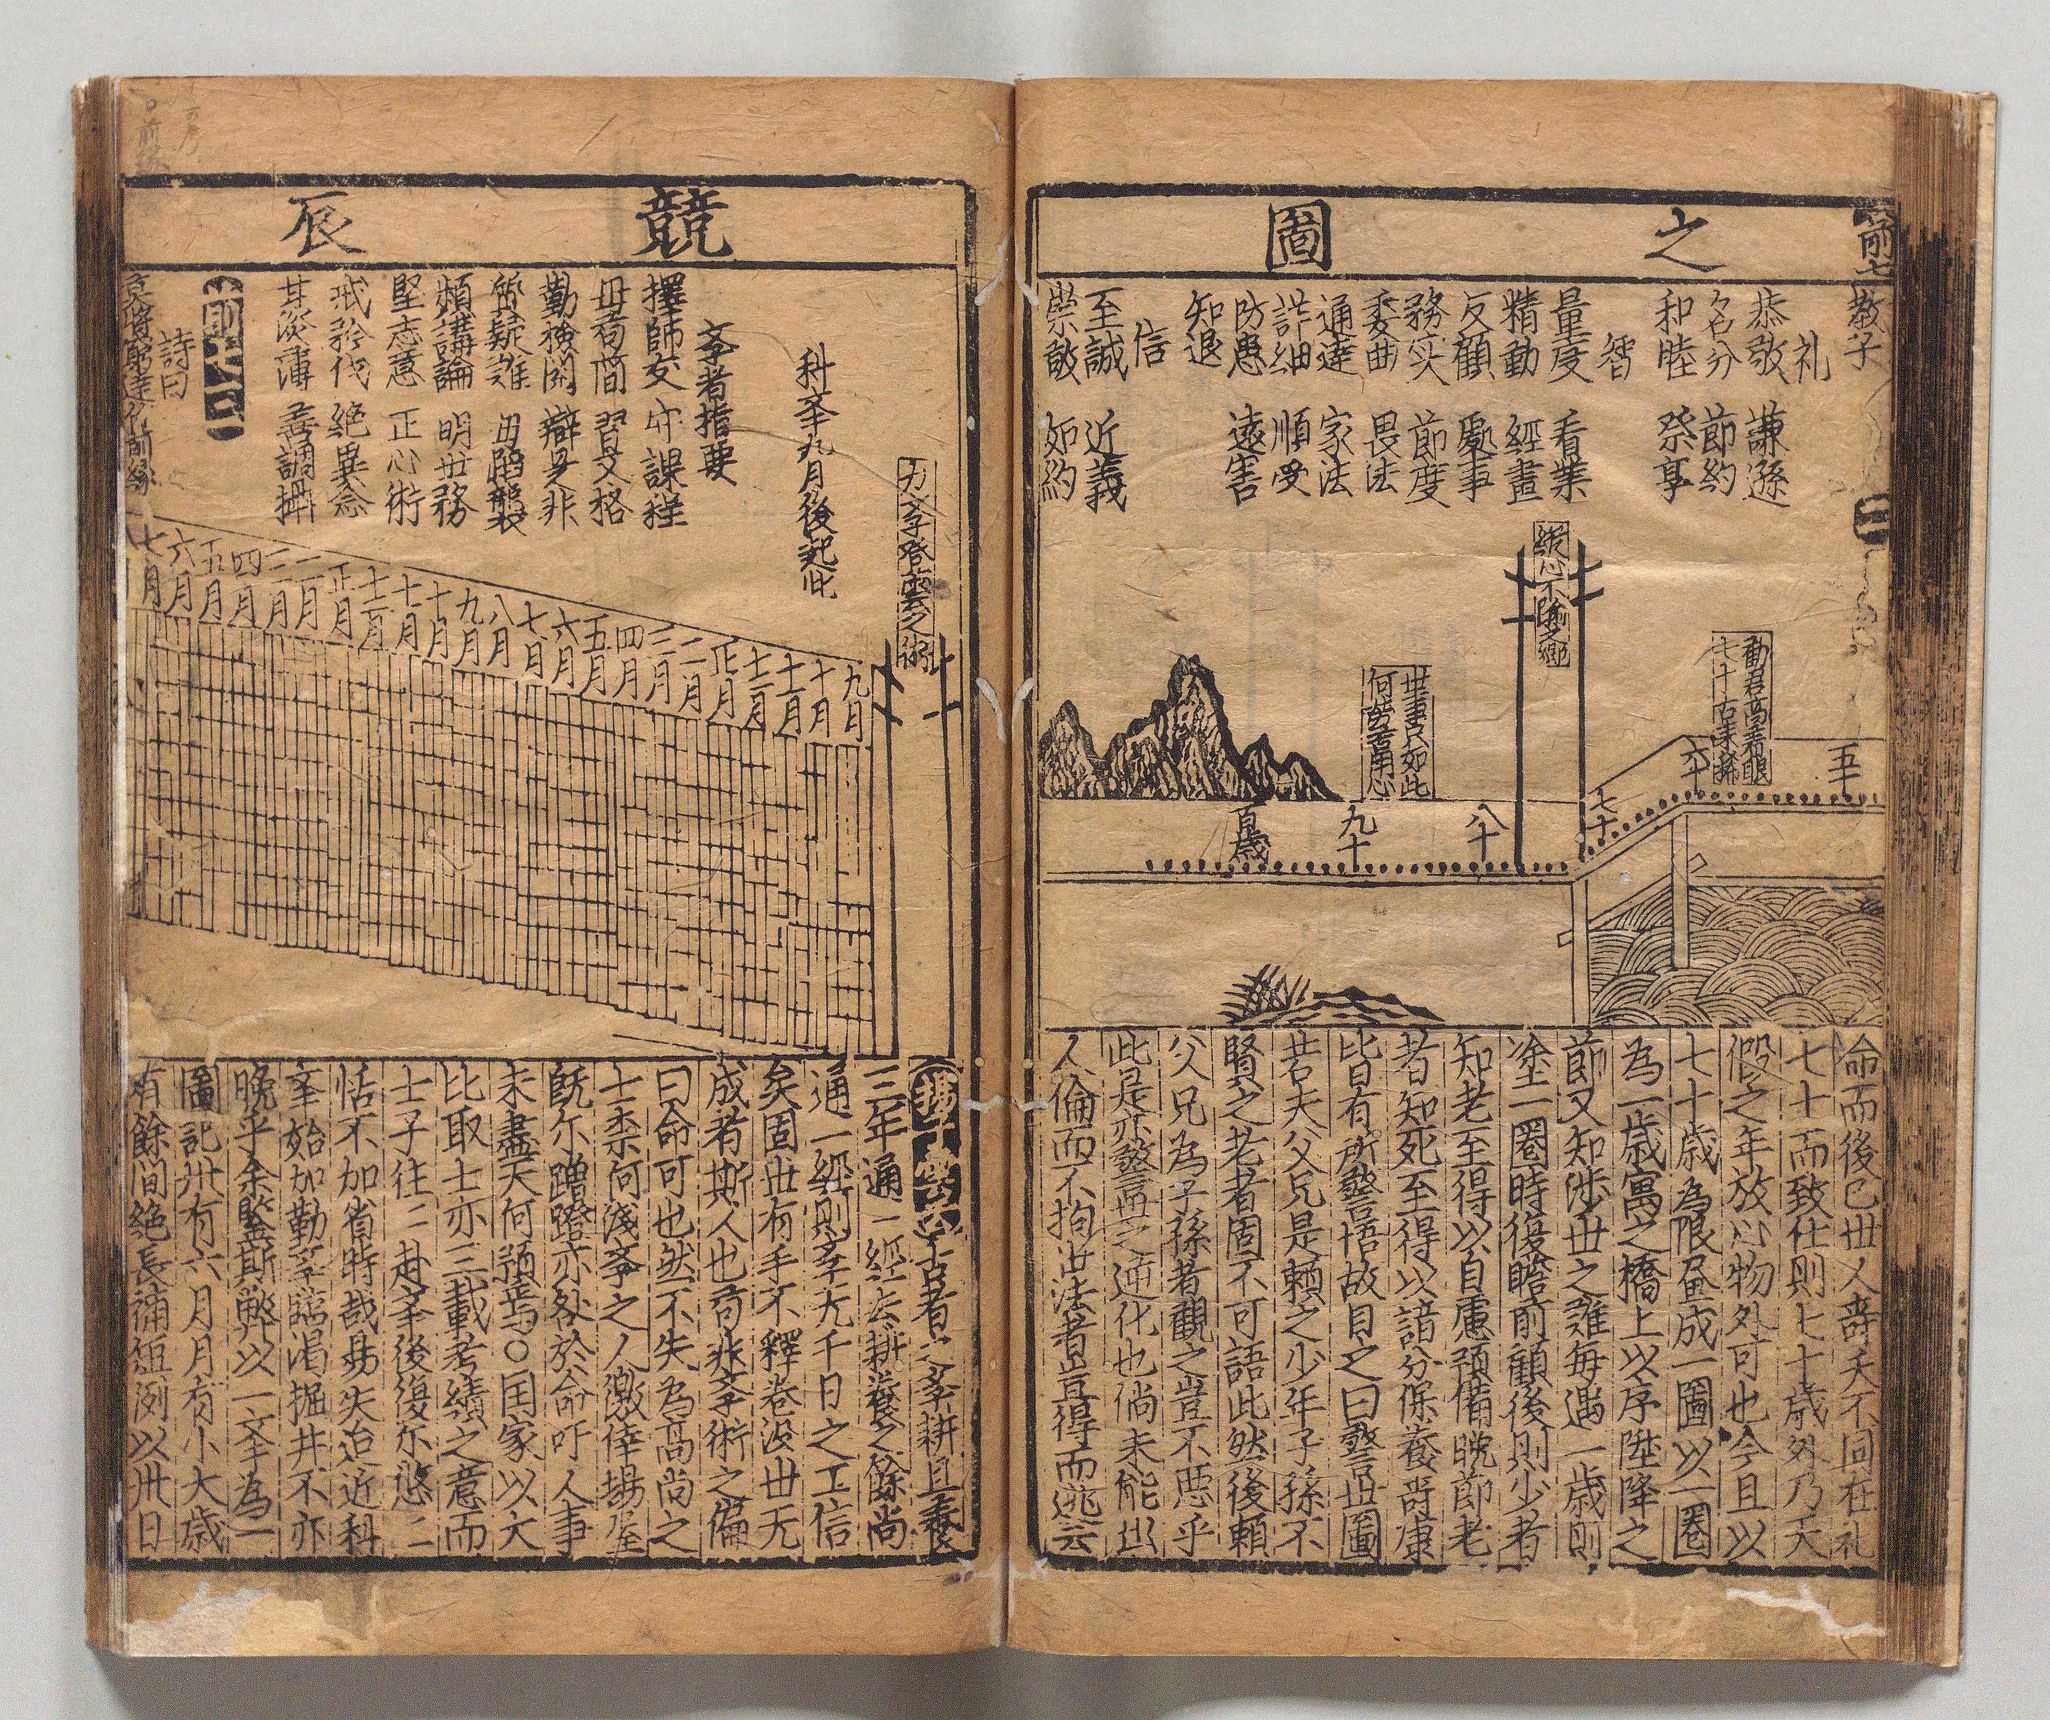 之圖
教子
礼
恭敬 謙遜
名分 節約
和睦 祭享
智
量度 看業
精勤 經畫
反顧 處事
務实 節度
委曲 畏法
通達 家法
詳細 順受
防患 遠害
知退
信
至誠 近義
崇敬 如約
勸君高着眼
七十古來稀
從心不踰之鄉
世事只如此
何勞苦用心
五十
六十
七十
八十
九十
百歲
命而後已世人壽夭不同在礼
七十而致仕則七十歲外乃天
假之年放心物外可也今且以
七十歲為限畫成一圖以一圈
為一歲寓之橋上以序陞降之
節又知涉世之難每遇一歲則
塗一圈時復瞻前顧後則少者
知老至得以自慮預備晚節老
者知死至得以諳分保養哥康
皆有所警悟故目之曰警世圖
若夫父兄是賴之少年子孫不
賢之老者固不可語此然後賴
父兄為子孫者觀之豈不惡乎
此是亦警世之通化也倘未能出
人倫而不拘此法者豈得而逃云
競辰
力斈登雲之術
科斈九月後起此
斈者指要
擇師友 守課程
毋苟簡 習文格
勤檢閱 辯是非
質疑難 毋蹈襲
頻講論 明世務
堅志意 正心術
戒矜伐 絕異念
甘淡薄 善調攝
詩曰
莫將窮達代前緣
九月
十月
十一月
十二月
正月
二月
三月
四月
五月
六月
七月
八月
九月
十月
十一月
十二月
正月
二月
三月
四月
五月
六月
七月
古者斈耕且養
三年通一經去耕養之餘尚
通一經則斈无千日之工信
矣固世有手不釋卷没世无
成者斯人也苟非斈術之偏
曰命可也然不失為高尚之
士柰何淺斈之人僥倖場屋
既尓蹭蹬亦咎於命吁人事
未盡天何預焉〇囯家以文
比取士亦三載考績之意而
士子往二赴斈後復尓悠二
恬不加省時哉易失迨近科
斈始加勤斈臨渴掘井不亦
晚乎余鑒斯弊以一斈為一
圖記卅有六月月有小大歲
有餘閏絶長補短例以卅日